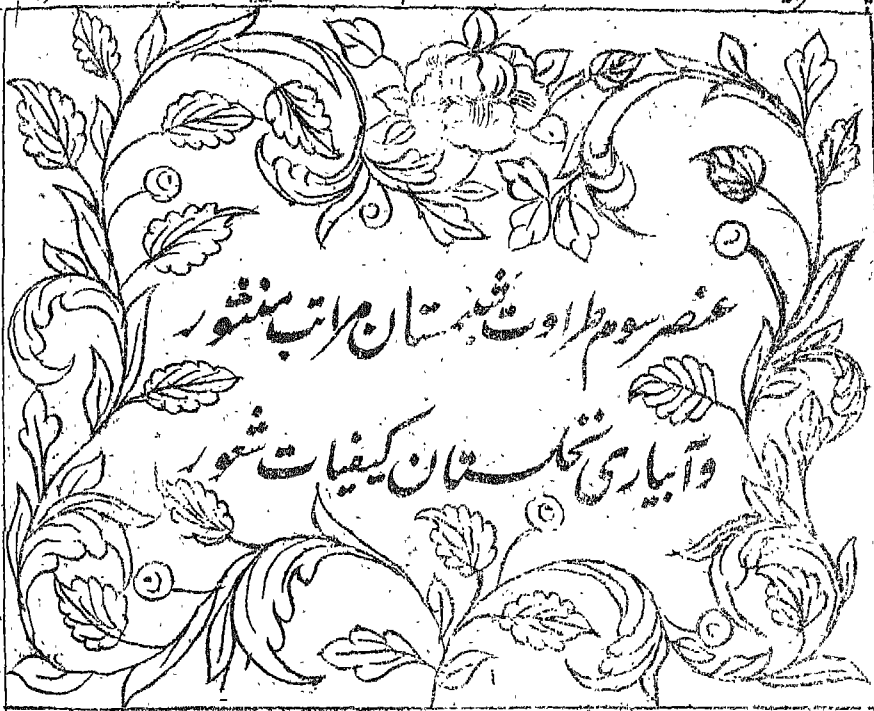 عنصر سوم طراوت شبنمستان مراتب منثور
وآبیاری نخلستان کیفیات شعور